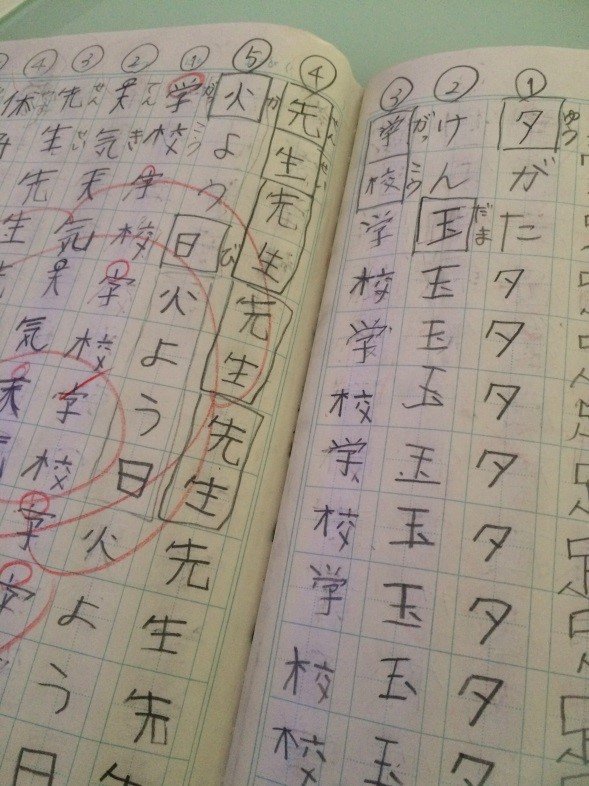 ①
夕がた夕夕夕夕夕夕夕夕
ゆう
②
けん玉玉玉玉玉玉玉玉玉
だま
③
学校学校学校学校学校校
がっこう
④
先生先生先生先生先生先生
せんせい
⑤
火よう日火よう日火よう日
か
び
①
学校学校学校学校学学
がっこう
②
天気天気天気天
てんき
③
先生先生
せんせい
④
休